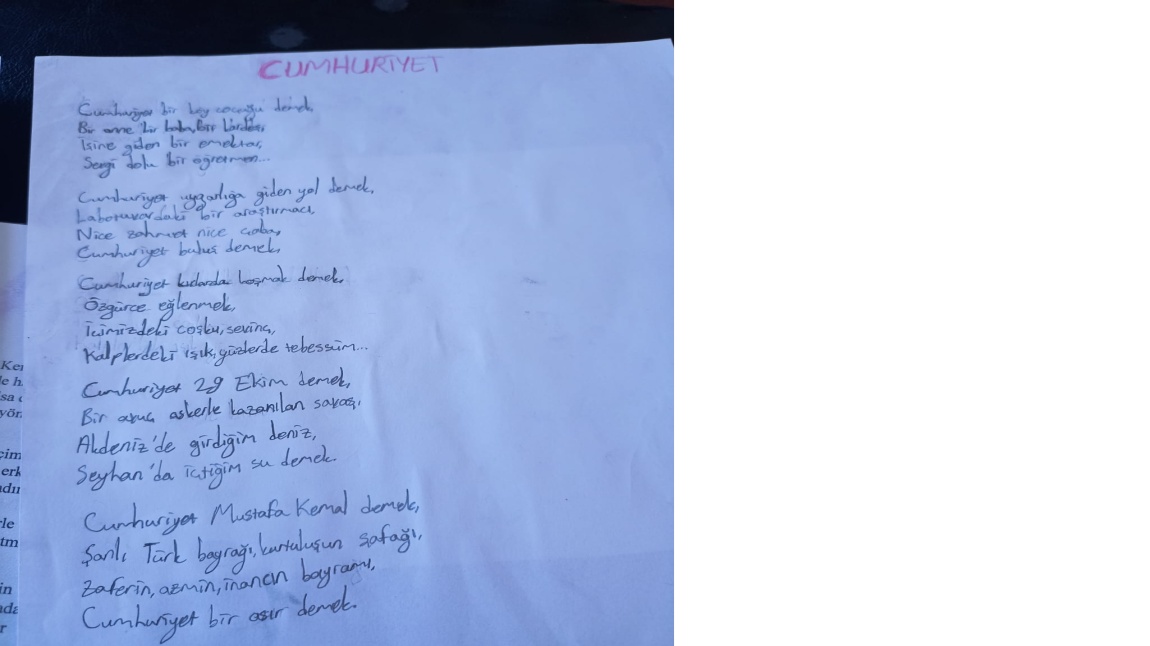 CUMHURİYET
Cumhuriyet bir köy çocuğu demek,
Bir anne bir baba, bir kardeş,
İşine giden bir emektar,
Sevgi dolu bir öğretmen...
Cumhuriyet uygarlığa giden yol demek,
Laboruvardaki bir araştırmacı,
Nice zahmet nice çaba,
Cumhuriyet buluş demek,
Cumhuriyet kırlarda koşmak demek,
Özgürce eğlenmek,
İçimizdeki coşku, sevinç,
Kalplerdeki ışık, yüzlerde tebessüm...
Cumhuriyet 29 Ekim demek,
Bir avuç askerle kazanılan savaş,
Akdeniz'de girdiğim deniz,
Seyhan'da içtiğim su demek.
Cumhuriyet Mustafa Kemal demek,
Şanlı Türk bayrağı, kurtuluşun şafağı,
Zaferin, azmin, inancın bayramı,
Cumhuriyet bir asır demek.